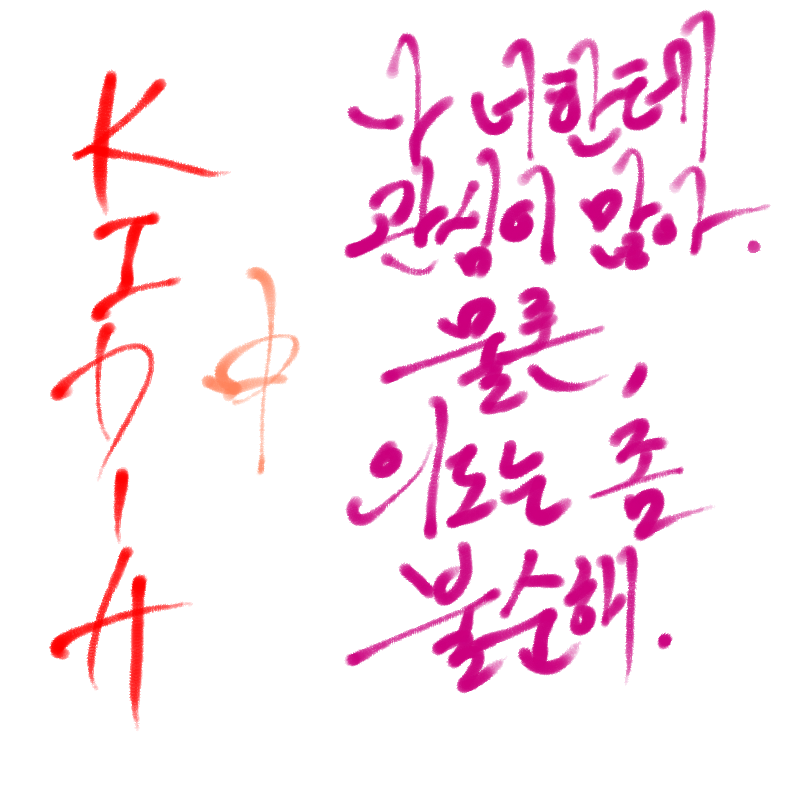 中
나 너한테
관심이 많아.
물론,
의도는 좀
불순해.